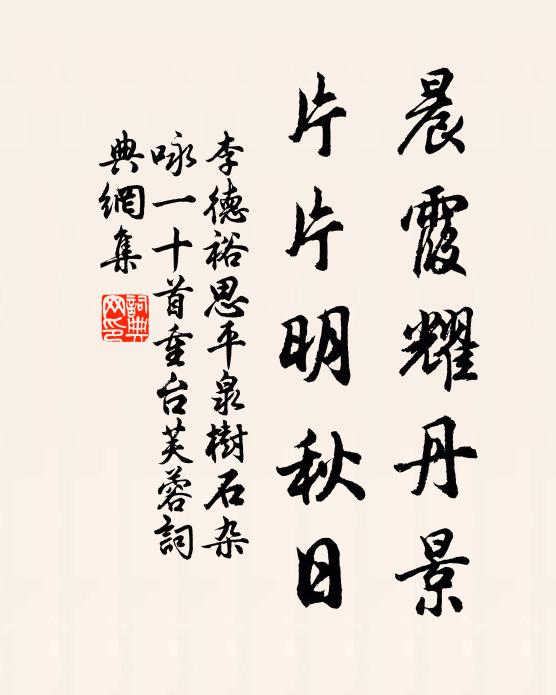 晨霞耀丹景
片片明秋日
李德裕思平泉樹石杂
咏一十首重台芙蓉詞
典網集
詞典
网印